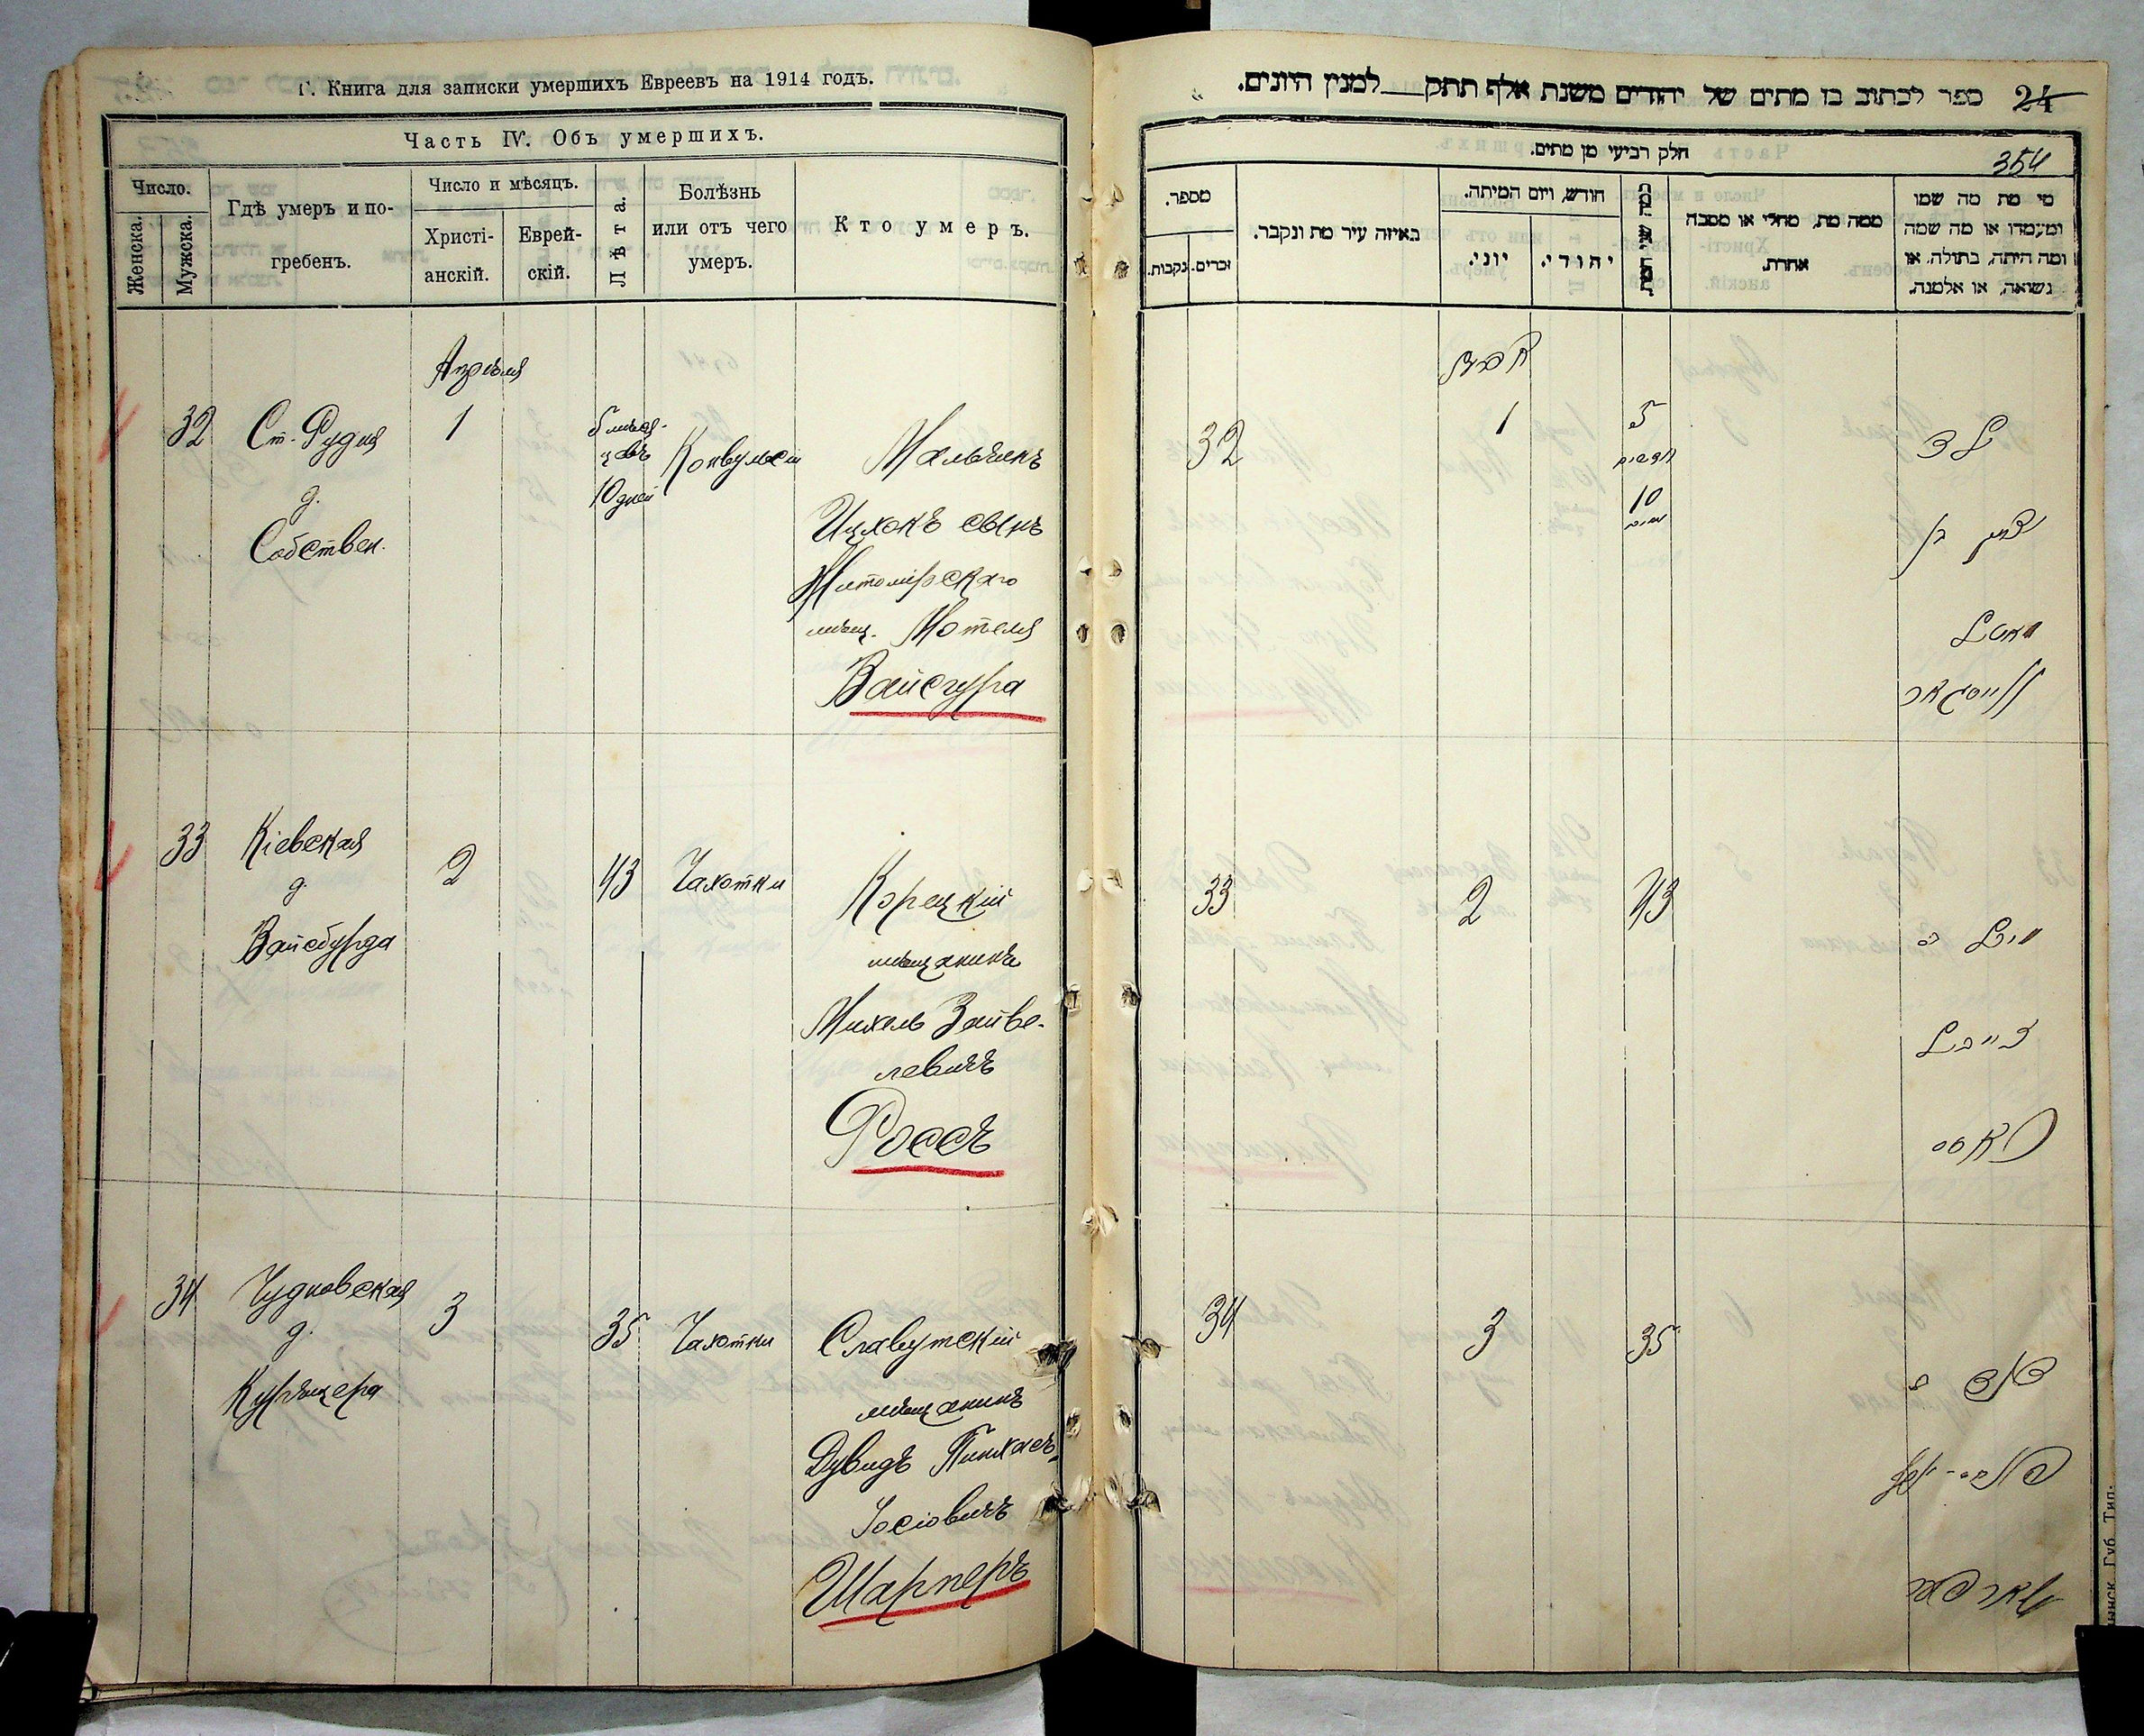 Г. Книга для записки умершихъ Евреевъ на 1914 годъ.
Часть IV. Объ умершихъ.
Число.
Женска.
Мужска.
Гдѣ умеръ и по-
гребенъ.
Число и мѣсяцъ.
Христі-
анскій.
Еврей-
скій.
Лѣта.
Болѣзнь
или отъ чего
умеръ.
Кто умеръ.
Апрѣля
32
Ст. Рудня
д.
Собствен.
1
5 мѣся-
цевъ
10 дней
Конвульсіи
Мальчикъ
Ицхокъ сынъ
Житомірскаго
мѣщ. Мотеля
Вайсгура
33
Кіевская
д.
Вайсбурда
2
43
Чахотки
Корецкій
мѣщанинъ
Михель Зайве-
левичъ
Россъ
34
Чудновская
д.
3
35
Чахотки
Славутскій
мѣщанинъ
Дувидъ Пинхасъ
Іосіовичъ
Шарперъ
24 ספר לכתוב בו מתים של יהודים משנת אלף תתק למנין היונים.
חלק רביעי מן מתים.
354
מספר.
זכרים.
נקבות.
באיזה עיר מת ונקבר.
חודש, ויום המיתה.
יוני.
יהודי.
כמה שני חיותו.
ממה מת, מחלי או מסבה
אחרת.
מי מת מה שמו
ומעמדו או מה שמה
ומה היתה, בתולה, או
נשואה, או אלמנה.
אפריל
32
1
5
חדשים
10
ימים
ילד
יצחק בן
מאטל
ווייסגאר
33
2
43
זייבל
ראסס
34
3
35
דוד
שארפער
Губ. Тип.